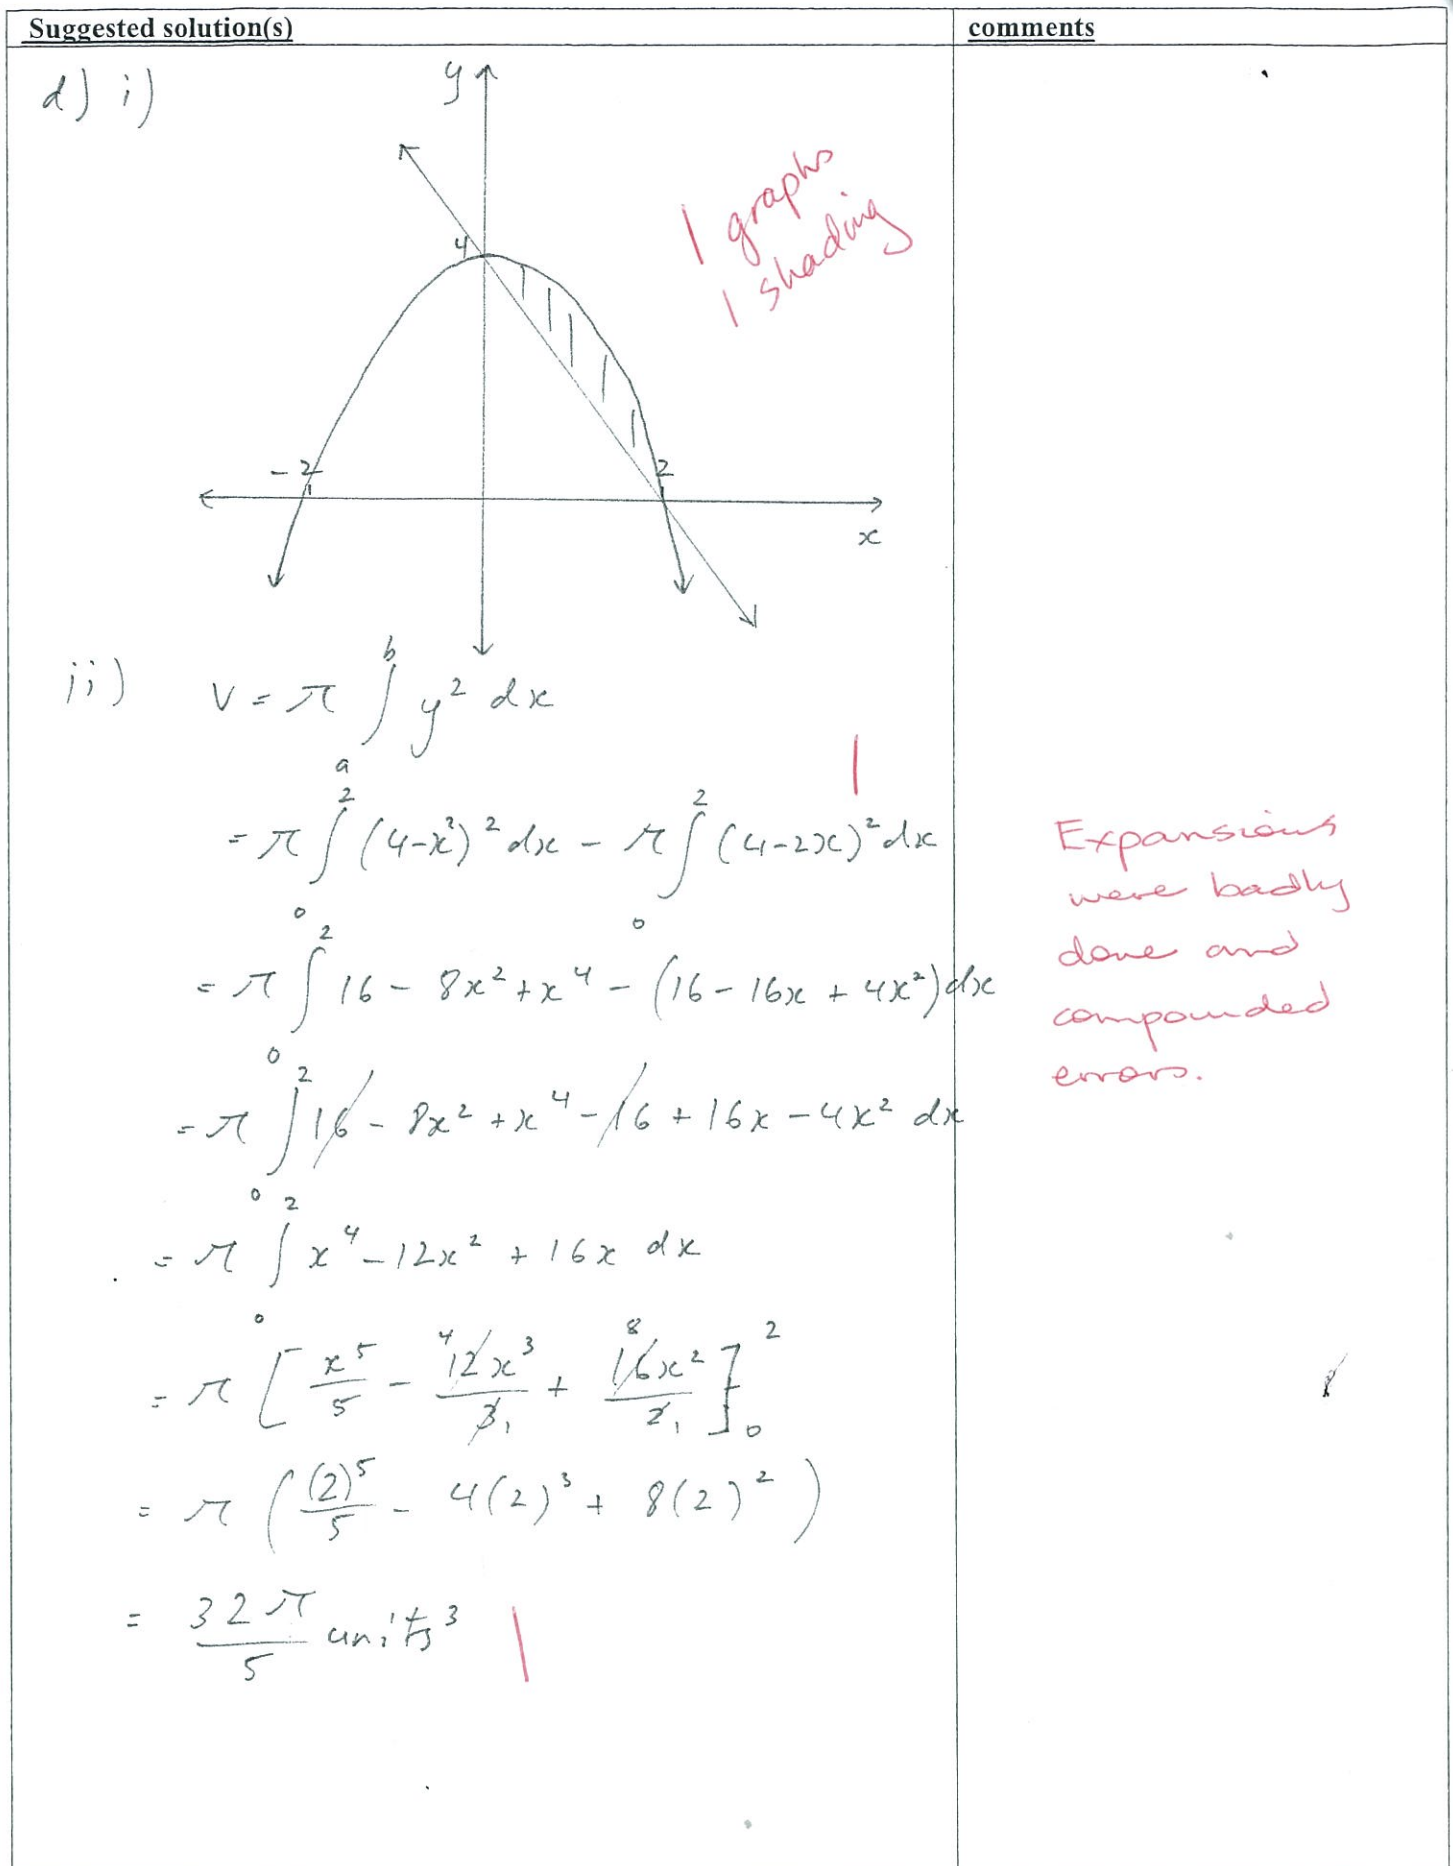 Suggested solution(s)
comments
d) i)
y
4
1 graphs
1 shading
-2
2
x
ii) V = π ∫_a^b y² dx
= π ∫_0^2 (4-x²)² dx - π ∫_0^2 (4-2x)² dx
1
= π ∫_0^2 16 - 8x² + x⁴ - (16 - 16x + 4x²) dx
= π ∫_0^2 16 - 8x² + x⁴ - 16 + 16x - 4x² dx
= π ∫_0^2 x⁴ - 12x² + 16x dx
= π [ x⁵/5 - ⁴12x³/3₁ + ⁸16x²/2₁ ]_0^2
= π ( (2)⁵/5 - 4(2)³ + 8(2)² )
= 32π/5 units³
1
Expansions
were badly
done and
compounded
errors.